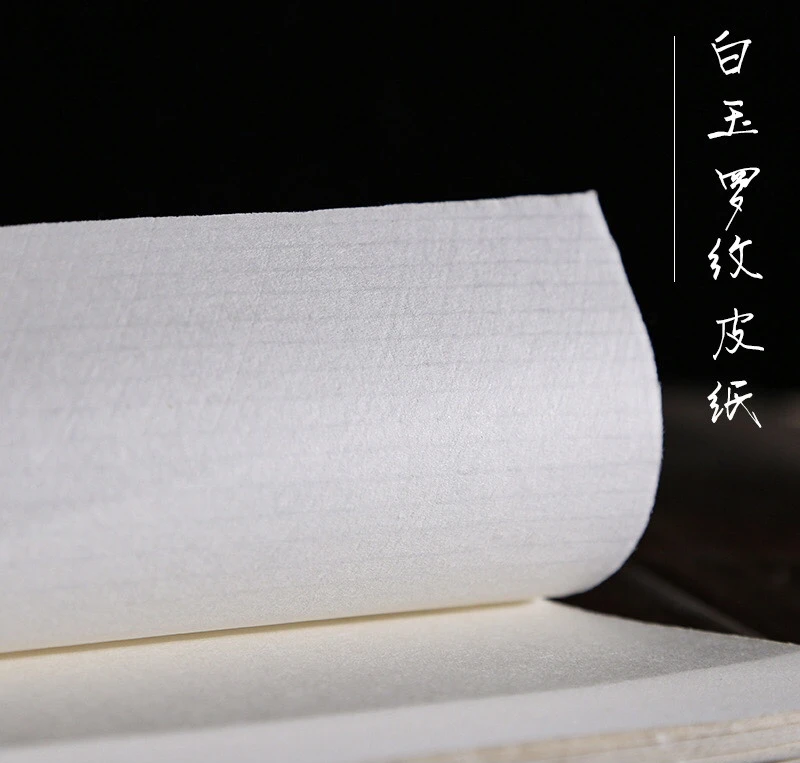 白玉罗纹皮纸